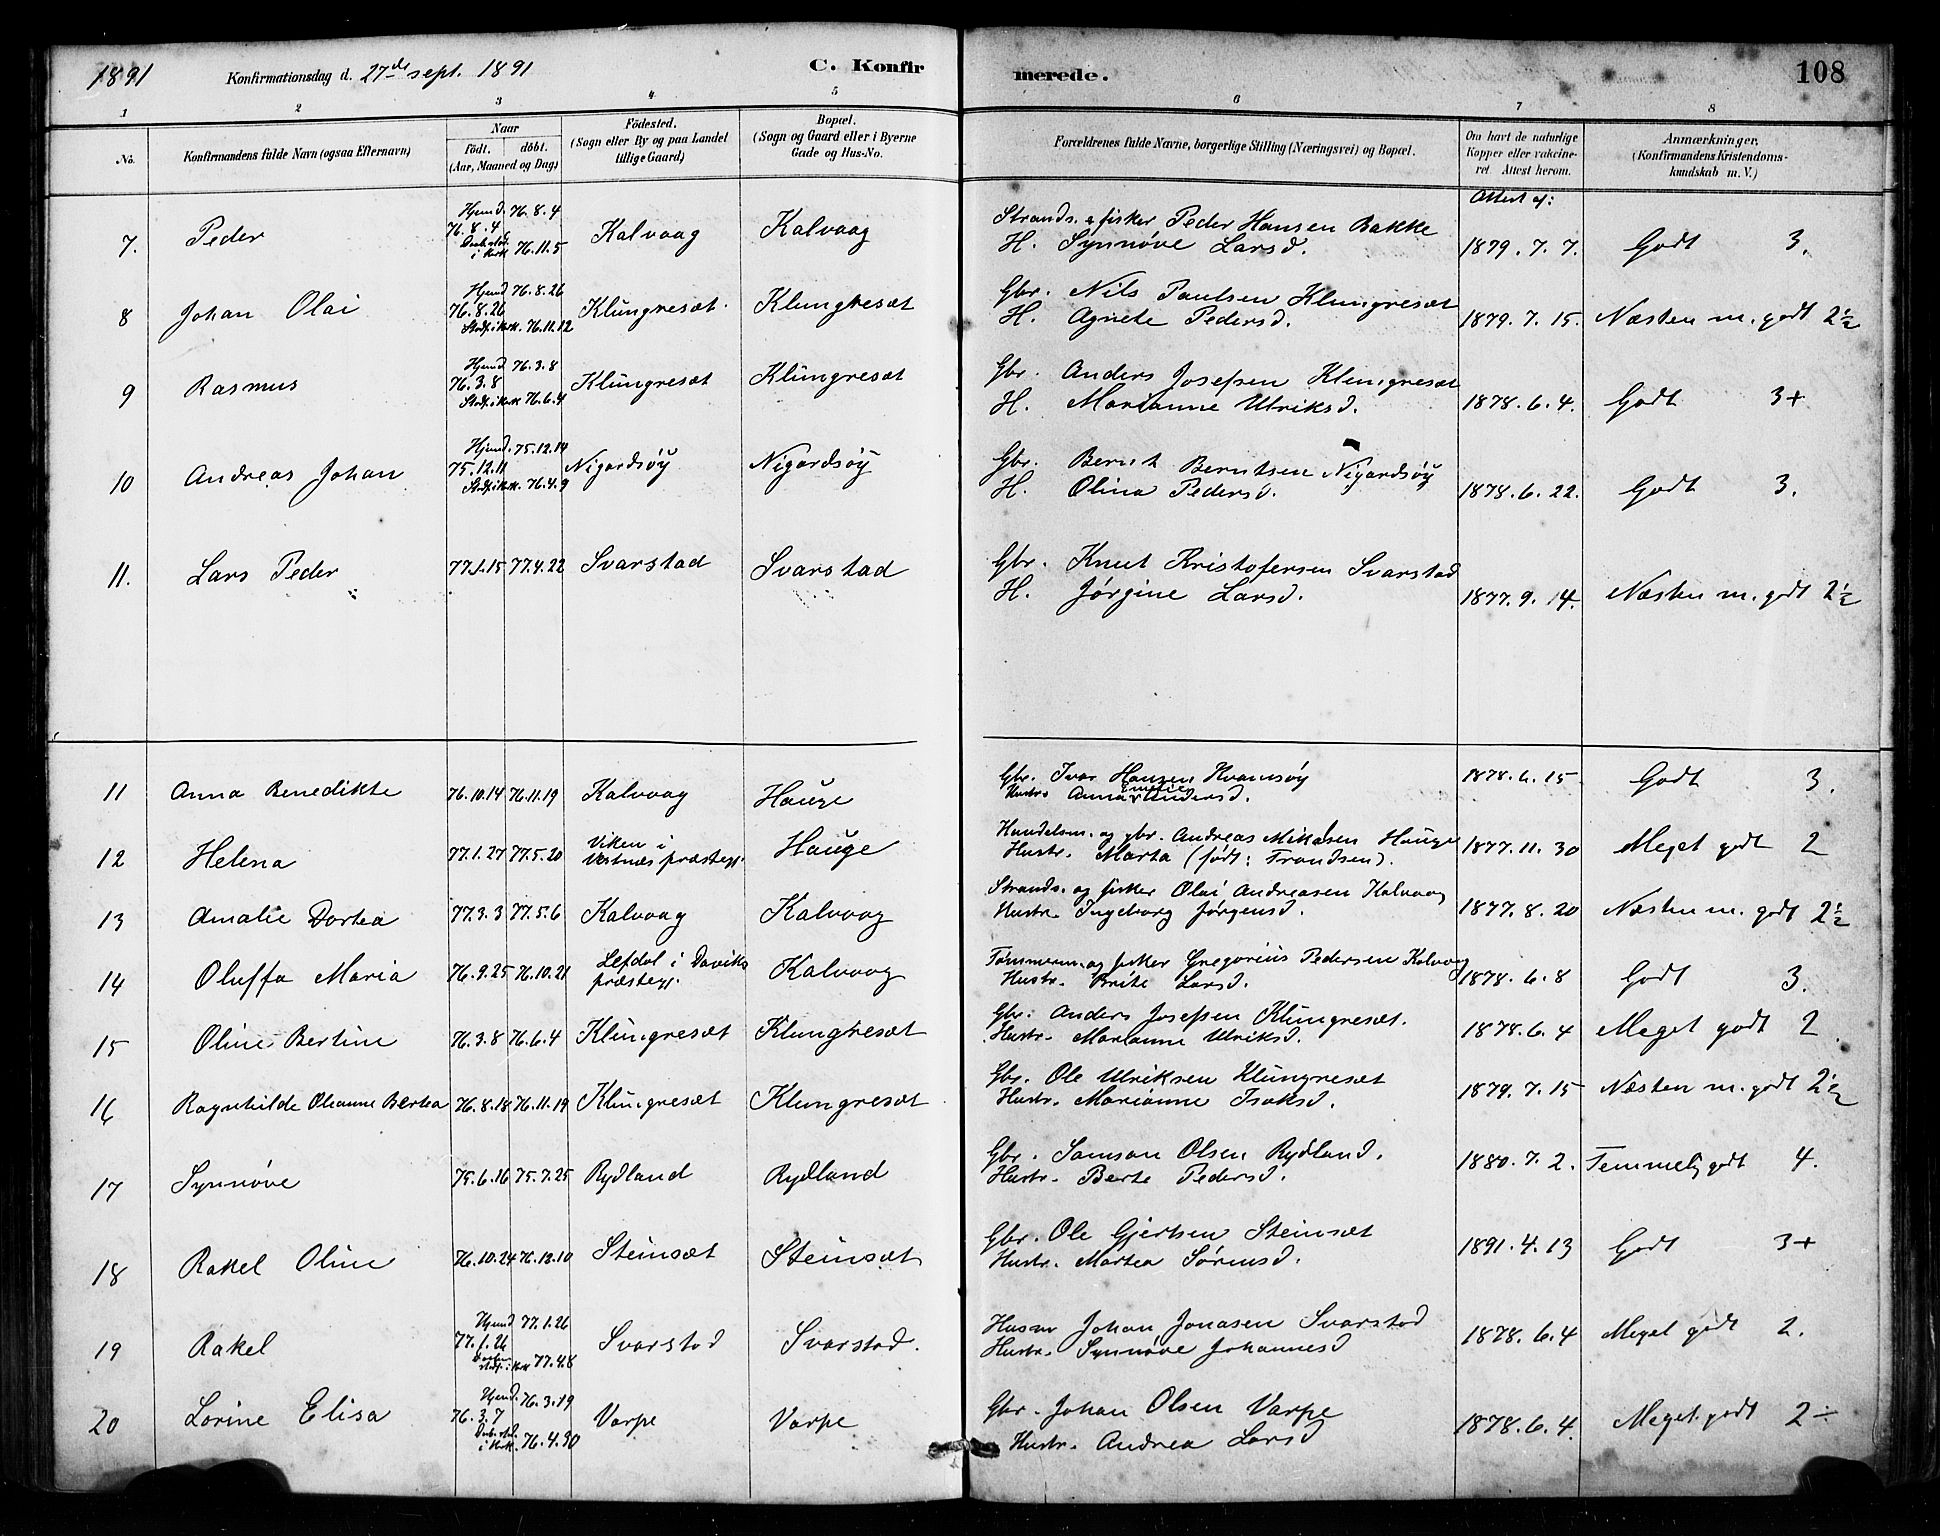 1891 Konfirmationsdag d. 27de sept. 1891 C. Konfirmerede. 108
1 2 3 4 5 6 7 8
No. Konfirmandens fulde Navn (ogsaa Efternavn) Naar Födt. döbt. (Aar, Maaned og Dag) Födested. (Sogn eller By og paa Landet tillige Gaard) Bopæl. (Sogn og Gaard eller i Byerne Gade og Hus-No. Forældrenes fulde Navne, borgerlige Stilling (Næringsvei) og Bopæl. Om havt de naturlige Kopper eller vakcineret. Attest herom. Anmærkninger. (Konfirmandens Kristendomskundskab m. V.)
Attest af:
7. Peder 76.8.4 Hjemd. 76.8.4 i Kirk 76.11.5 Kalvaag Kalvaag Strands. & fisker Peder Hansen Bakke
H. Synnøve Larsd. 1879.7.7. Godt 3.
8 Johan Olai 76.8.26 Hjemd 76.8.26 Stadf. i Kirk. 76.11.12 Klungresæt Klungresæt Gbr. Nils Paulsen Klungresæt
H. Agnete Pedersd. 1879.7.15. Næsten m. godt 2½
9 Rasmus 76.3.8 Hjemd 76.3.8 Stadf. i Kirk 76.6.4 Klungresæt Klungresæt Gbr. Anders Josefsen Klungresæt
H. Marianne Ulriksd. 1878.6.4. Godt 3+
10 Andreas Johan 75.12.11 Hjemd. 75.12.14 Stadf. i Kirk. 76.4.9 Nigardsøy Nigardsøy Gbr. Bernt Berntsen Nigardsøy
H. Olina Pedersd. 1878.6.22. Godt 3.
11. Lars Peder 77.1.15 77.4.22 Svarstad Svarstad Gbr. Knut Kristofersen Svarstad
H. Jørgine Larsd. 1877.9.14. Næsten m. godt 2½
11 Anna Benedikte 76.10.14 76.11.19 Kalvaag Hauge Gbr. Ivar Hansen Kvamsøy
Hustr. Anna Andersd. 1878.6.15 Godt 3.
12 Helena 77.1.27 77.5.20 Viken i Vestnæs præstegj. Hauge Handelsm. og gbr. Andreas Mikalsen Hauge
Hustr. Marta (født: Frandsen). 1877.11.30 Meget godt 2
13 Amalie Dortea 77.3.3 77.5.6 Kalvaag Kalvaag Strands. og fisker Olai Andreasen Kalvaag
Hustr. Ingeborg Jørgensd. 1877.8.20 Næsten m. godt 2½
14 Oluffa Maria 76.9.25 76.10.21 Lefdal i Daviks præstegj. Kalvaag Tømmerm. og fisker Gregorius Pedersen Kalvaag
Hustr. Brite Larsd. 1878.6.8 Godt 3.
15 Oline Bertine 76.3.8 76.6.4 Klungresæt Klungresæt Gbr. Anders Josefsen Klungresæt.
Hustr. Marianne Ulriksd. 1878.6.4 Meget godt 2
16 Ragnhilde Oleanne Bertea 76.8.18 76.11.19 Klungresæt Klungresæt Gbr. Ole Ulriksen Klungresæt
Hustr. Marianne Isaksd. 1879.7.15 Næsten m. godt 2½
17 Synnøve 75.6.26 75.7.25 Rydland Rydland Gbr. Samson Olsen Rydland.
Hustr. Berte Pedersd. 1880.7.2. Temmelig godt 4.
18 Rakel Oline 76.10.24 76.12.10 Steinsæt Steinsæt Gbr. Ole Gjertsen Steinsæt
Hustr. Martea Sørensd. 1891.4.13 Godt 3+
19 Rakel 77.1.26 Hjemd 77.1.26 stadf. i Kirk 77.4.8 Svarstad Svarstad. Husm Johan Jonasen Svarstad
Hustr. Synnøve Johannesd 1878.6.4 Meget godt 2.
20 Lorine Elisa 76.3.7 Hjemd. 76.3.19 i Kirk. 76.4.30 Varpe Varpe Gbr. Johan Olsen Varpe
Hustr. Andrea Larsd 1878.6.4. Meget godt 2÷